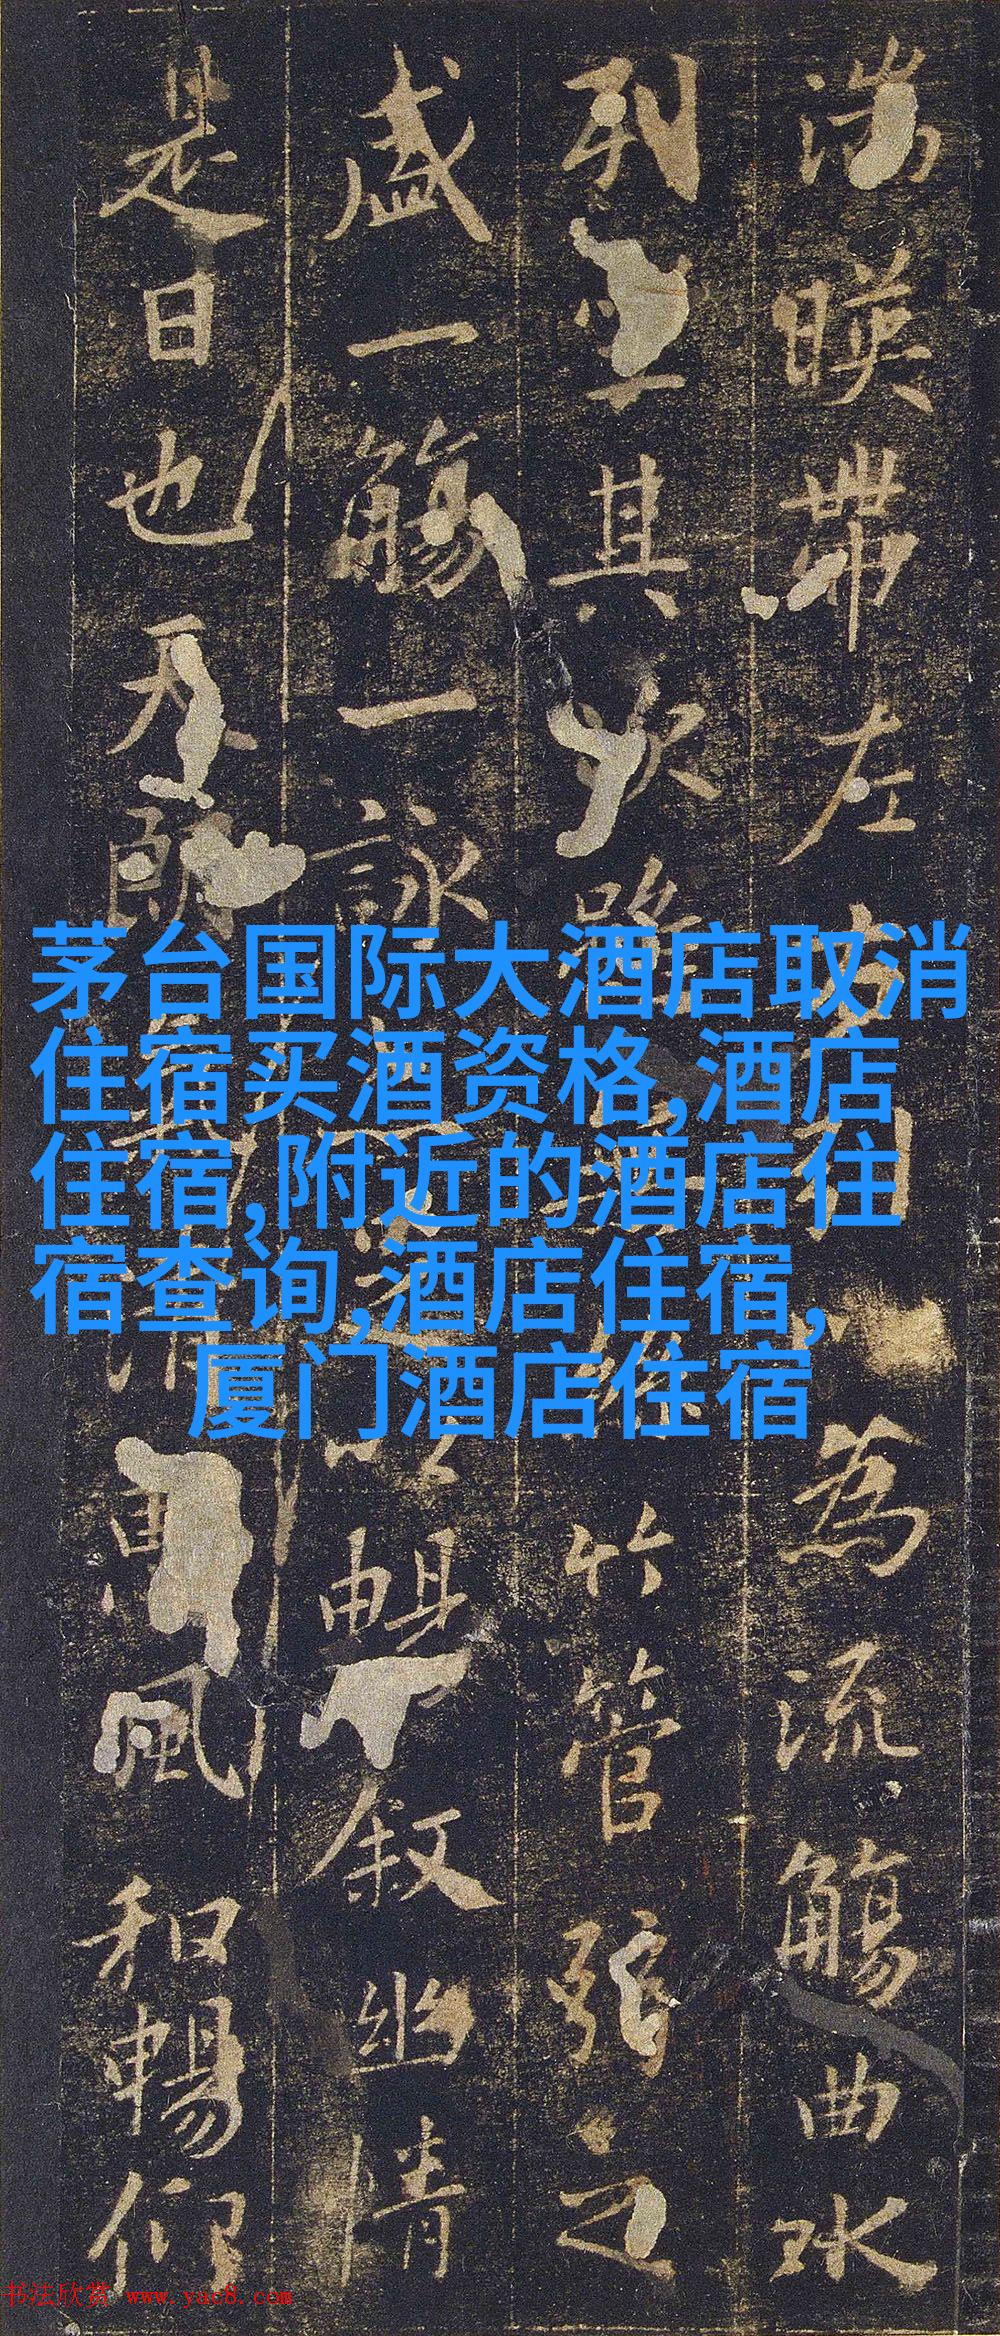 湍暎帶左右
為流觴曲水
列坐其次雖無
竹管弦之
盛一觴一詠
以暢叙幽情
是日也天朗氣清
惠風和暢仰
茅台国际大酒店取消
住宿买酒资格,酒店
住宿,附近的酒店住
宿查询,酒店住宿,
厦门酒店住宿
书法欣赏 www.yac8.com